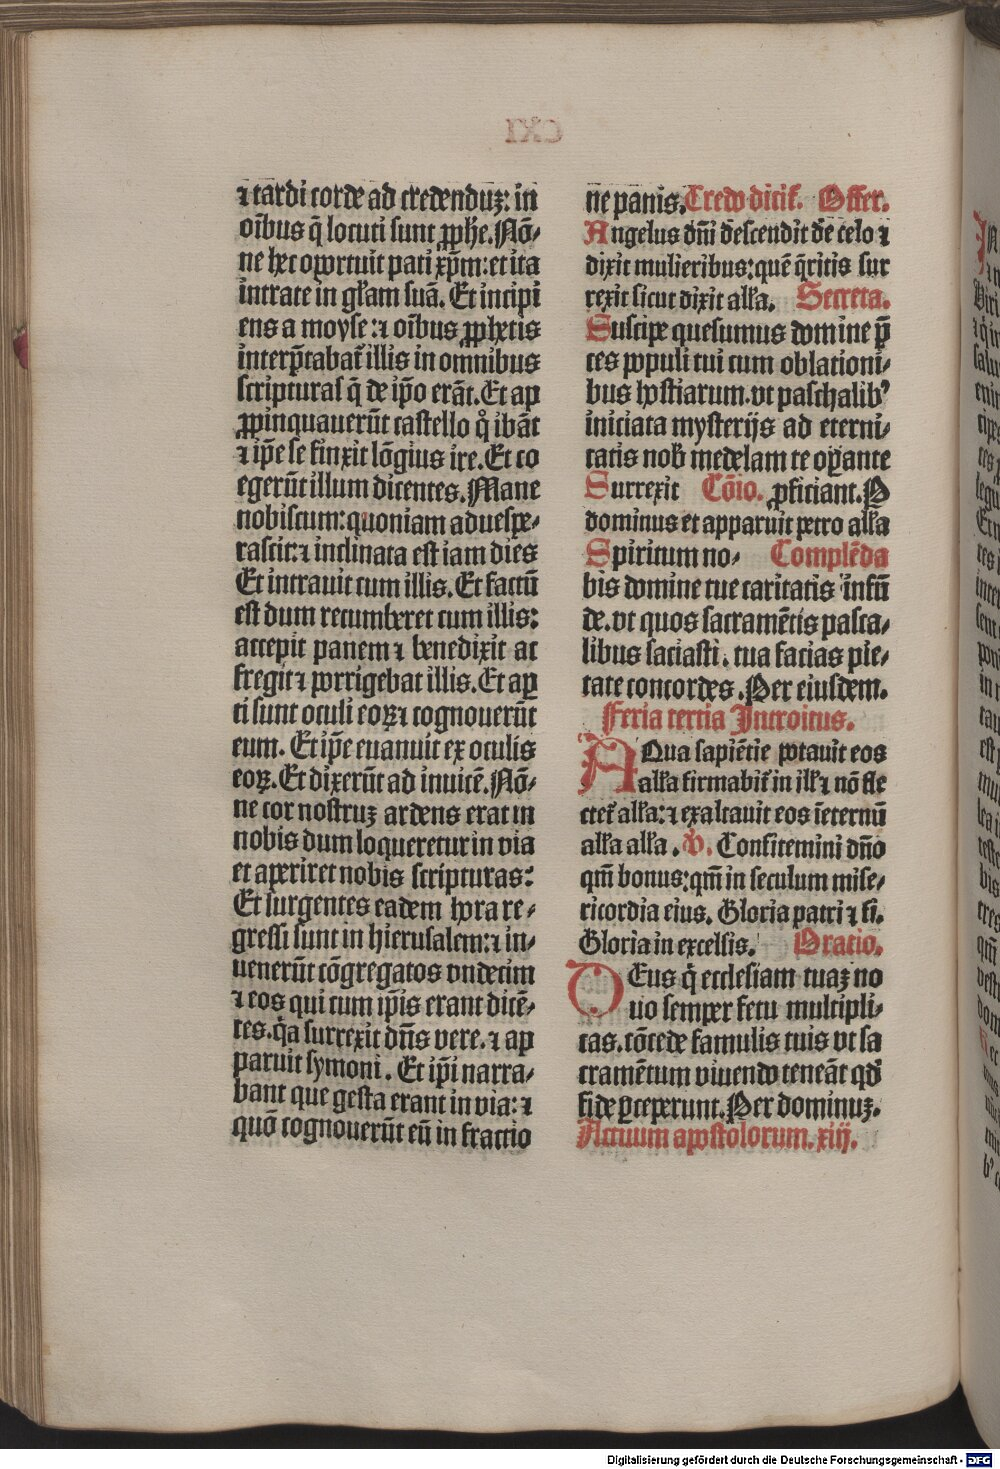 ⁊ tardi corde ad credenduꝫ: in
oībus q̄ locuti sunt ꝓphe. Nō-
ne hec oportuit pati xp̄m: et ita
intrare in gl̄am suā. Et incipi
ens a moyse: ⁊ oībus ꝓphetis
interp̄tabat᷑ illis in omnibus
scripturas q̄ de ip̄o erāt. Et ap
ꝓpinquauerūt castello qͦ ibāt
⁊ ip̄e se finxit lōgius ire. Et co
egerūt illum dicentes. Mane
nobiscum: quoniam aduespe-
rascit: ⁊ inclinata est iam dies
Et intrauit cum illis. Et factū
est dum recumberet cum illis:
accepit panem ⁊ benedixit ac
fregit ⁊ porrigebat illis. Et aꝑ
ti sunt oculi eoꝝ ⁊ cognouerūt
eum. Et ip̄e euanuit ex oculis
eoꝝ. Et dixerūt ad inuicē. Nō-
ne cor nostruꝫ ardens erat in
nobis dum loqueretur in via
et aperiret nobis scripturas:
Et surgentes eadem hora re-
gressi sunt in hierusalem: ⁊ in-
uenerūt cōgregatos vndecim
⁊ eos qui cum ip̄is erant dicē-
tes. q̇a surrexit dn̄s vere. ⁊ ap
paruit symoni. Et ip̄i narra-
bant que gesta erant in via: ⁊
quō cognouerūt eū in fractio
ne panis. Credo dicit᷑. Offer.
Angelus dn̄i descendit de celo ⁊
dixit mulieribus: quē q̄ritis sur
rexit sicut dixit all̄a. Secreta.
Suscipe quesumus domine p̄
ces populi tui cum oblationi-
bus hostiarum. vt paschalibꝰ
iniciata mysterijs ad eterni-
tatis nob̄ medelam te oꝑante
Surrexit Cōio. ꝓficiant. P
dominus et apparuit petro all̄a
Spiritum no- Complēda
bis domine tue caritatis infū
de. vt quos sacramētis pasca-
libus saciasti. tua facias pie-
tate concordes. Per eiusdem.
Feria tertia Introitus.
AQua sapiētie potauit eos
all̄a firmabit᷑ in ill̄ ⁊ nō fle
ctet᷑ all̄a: ⁊ exaltauit eos īeternū
all̄a all̄a. V. Confitemini dn̄o
qm̄ bonus: qm̄ in seculum mise-
ricordia eius. Gloria patri ⁊ fi.
Gloria in excelsis. Oratio.
DEus q̇ ecclesiam tuaꝫ no
uo semper fetu multipli-
cas. cōcede famulis tuis vt sa
cramētum viuendo teneāt qd̄
fide ꝑceperunt. Per dominuꝫ.
Actuum apostolorum. xiij.
Digitalisierung gefördert durch die Deutsche Forschungsgemeinschaft - DFG